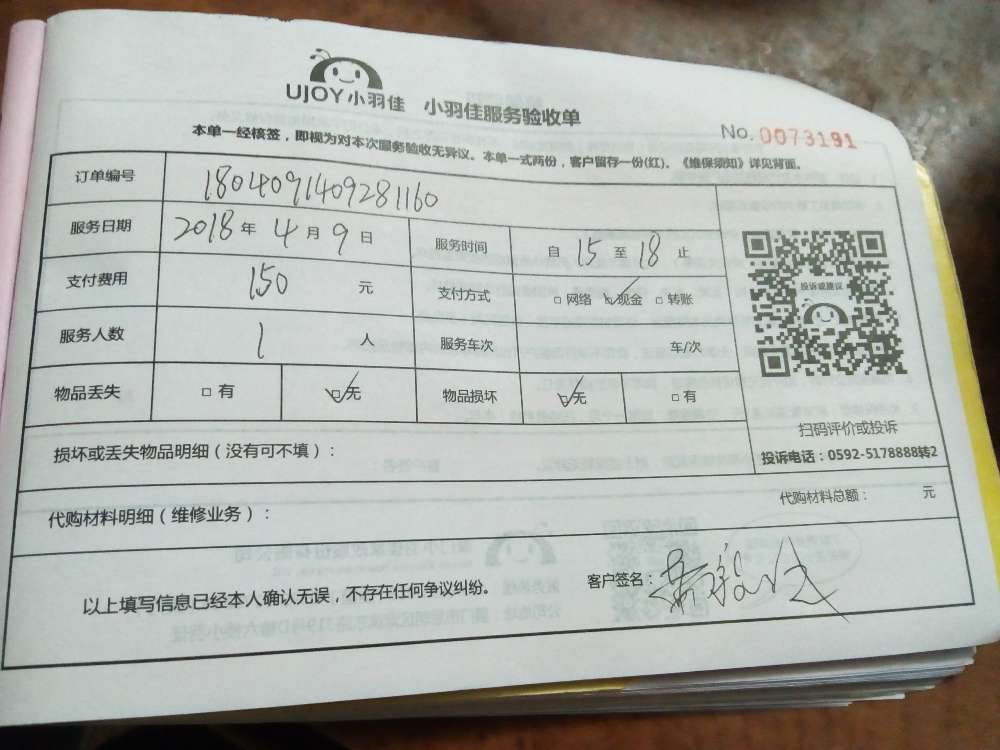 UJOY小羽佳 小羽佳服务验收单
No. 0073191
本单一经核签，即视为对本次服务验收无异议。本单一式两份，客户留存一份(红)。《维保须知》详见背面。
订单编号 1804091409281160
服务日期 2018 年 4 月 9 日 服务时间 自 15 至 18 止
支付费用 150 元 支付方式 □ 网络 ☑ 现金 □ 转账
服务人数 1 人 服务车次 车/次
物品丢失 □ 有 ☑ 无 物品损坏 ☑ 无 □ 有
投诉或建议
扫码评价或投诉
投诉电话：0592-5178888转2
损坏或丢失物品明细（没有可不填）：
代购材料明细（维修业务）： 代购材料总额： 元
以上填写信息已经本人确认无误，不存在任何争议纠纷。 客户签名：